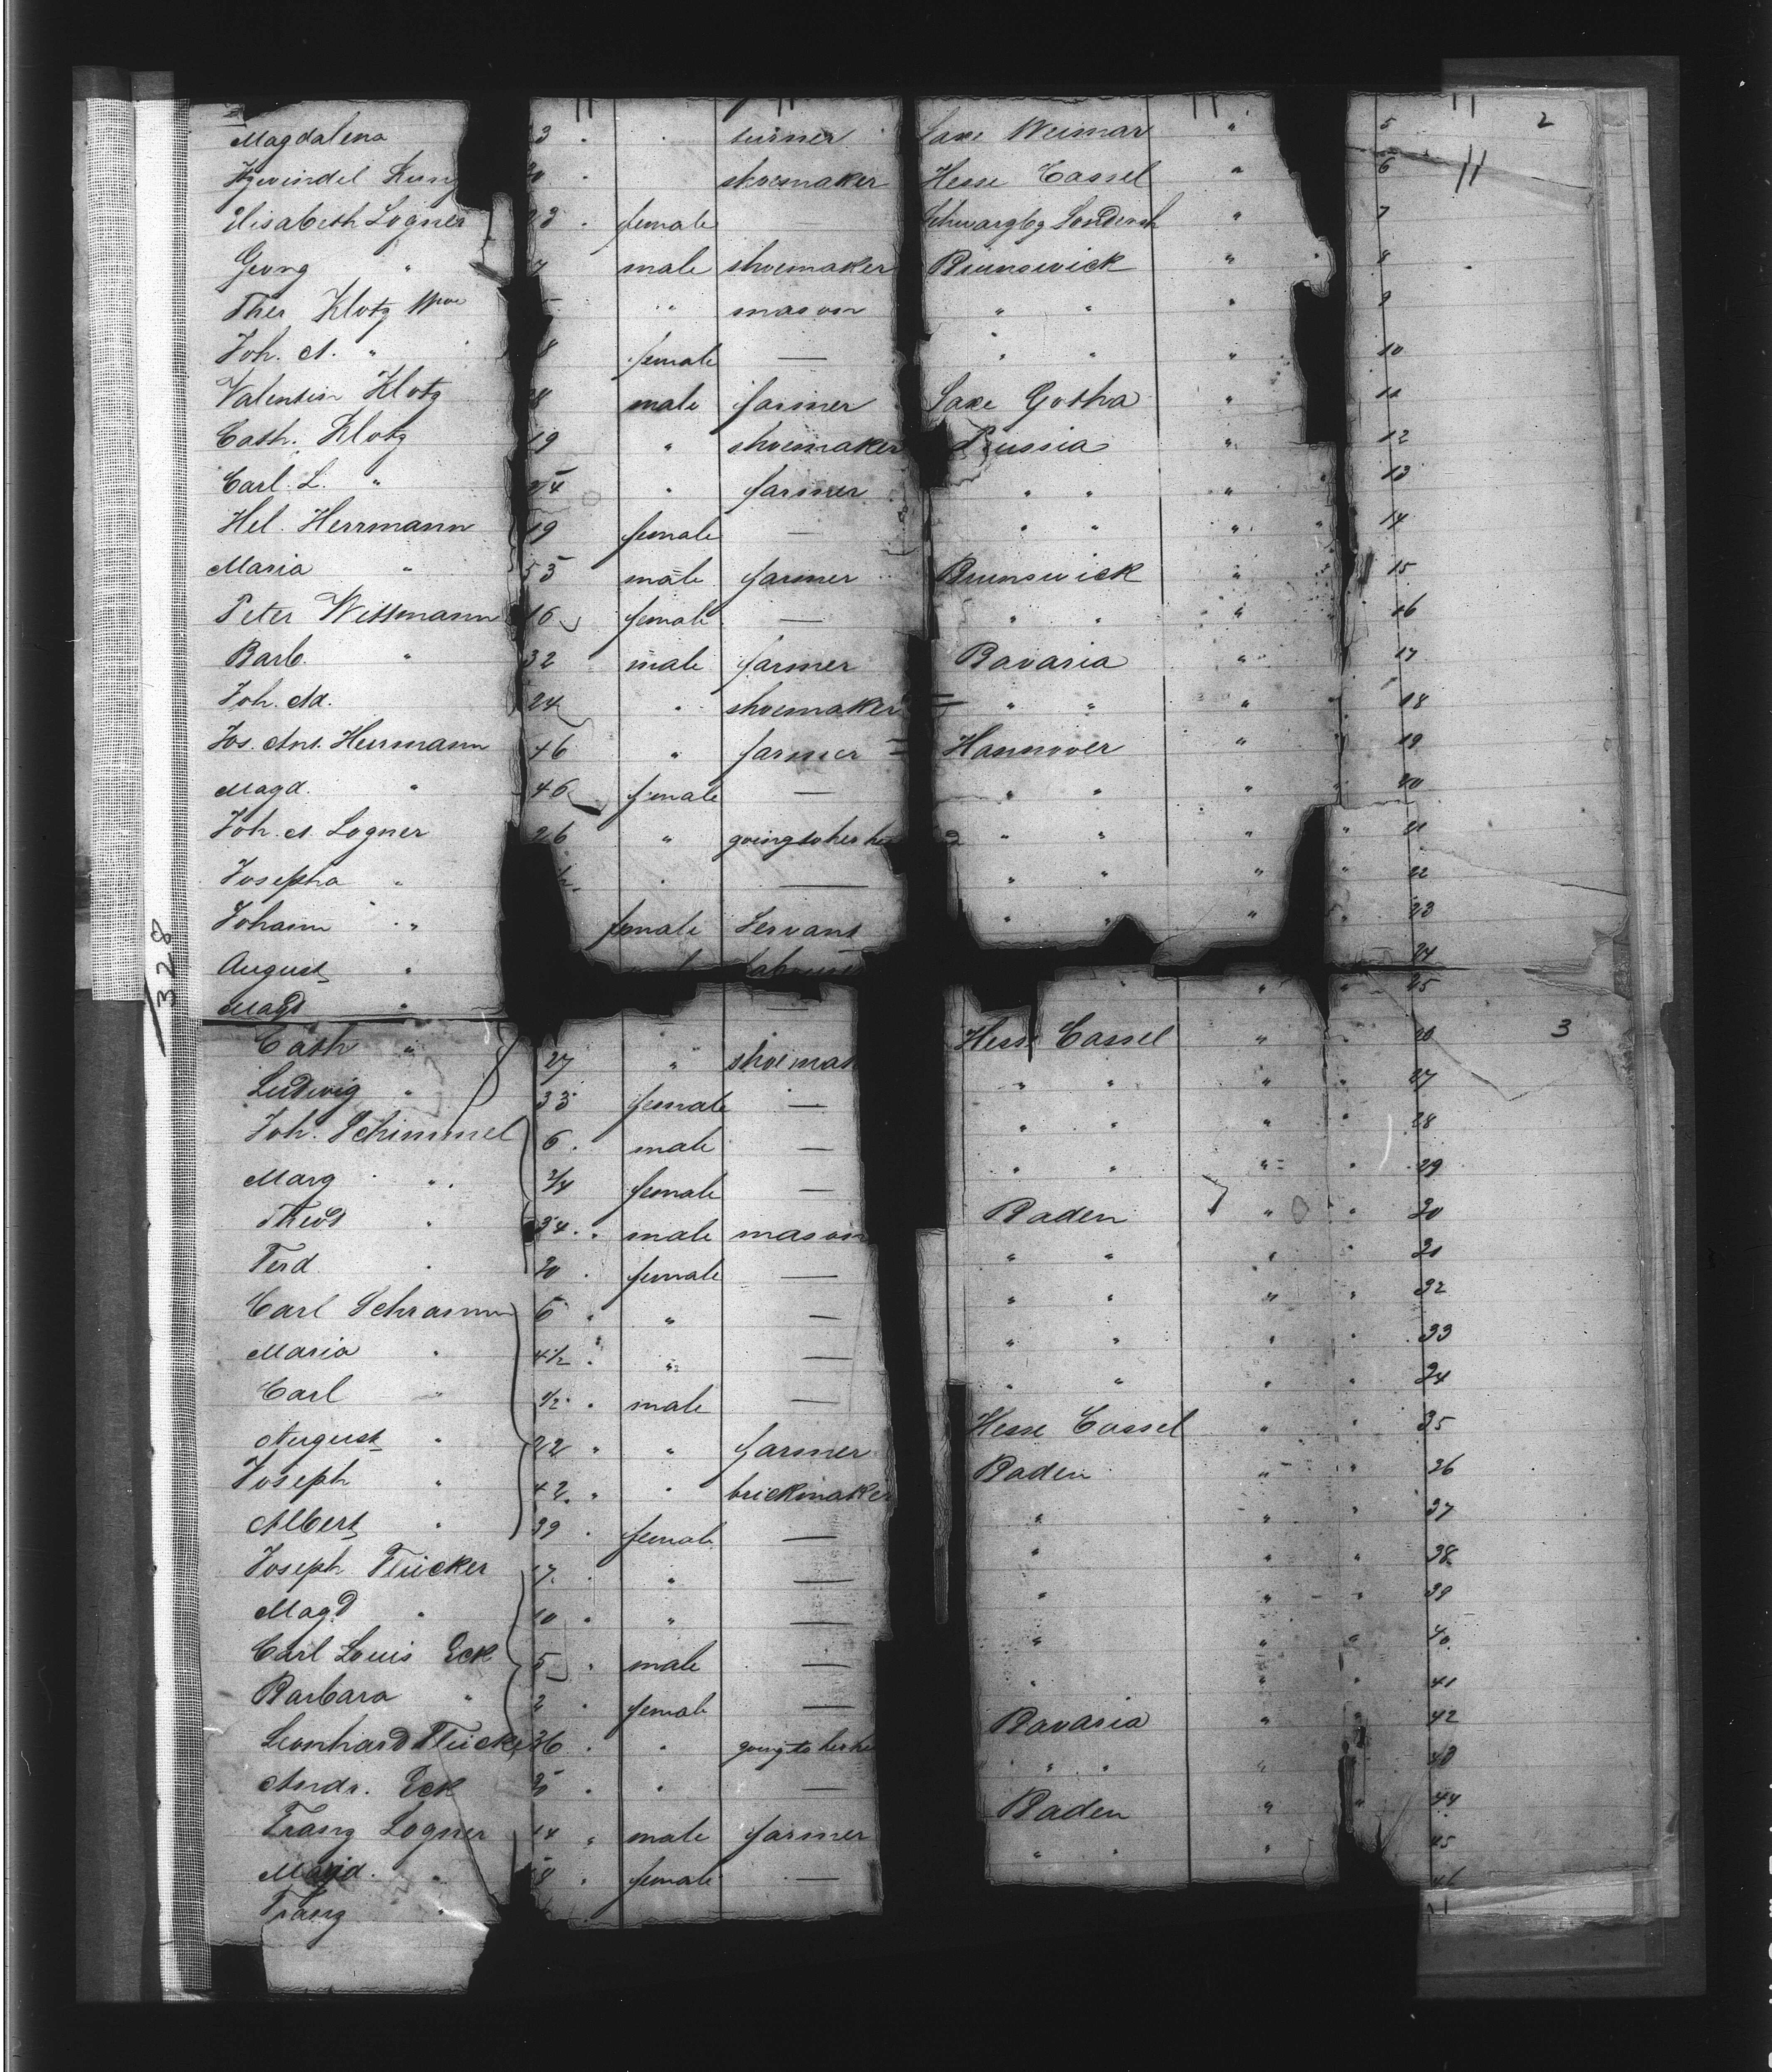 Magdalena 23 " " turner Saxe Weimar " 5 2
Kung 30 " shoemaker Hesse Cassel " 6
Elisabeth Logner 23 " female Schwarzbg Sondersh " 7
Georg " 7 male shoemaker Brunswick " 8
Ther Klotz Wwe 5 " mason " " " 9
Joh. A. " 8 female — " " " 10
Valentin Klotz 28 male farmer Saxe Gotha " 11
Cath. Klotz 19 " shoemaker Prussia " 12
Carl L. " 54 " farmer " " " 13
Hel. Herrmann 19 female — " " " " 14
Maria " 53 male farmer Brunswick " " 15
Peter Wittmann 16 female — " " " 16
Barb. " 32 male farmer Bavaria " 17
Joh. Ad. 24 " shoemaker " " " " 18
Jos. Ant. Herrmann 46 " farmer Hannover " " 19
Magd. " 46 female — " " " " 20
Joh. A. Logner 26 " going to her hu " " " " 21
Josepha " " — " " " " 22
Johann " female Servant " " " " 23
August " labourer 24
Magd " — " " 25
Cath " 27 " shoemak Hesse Cassel " " 26 3
Ludwig " 33 female — " " " " 27
Joh. Schimmel 6 " male — " " " " 28
Marg " 3/4 female — " " " " 29
Theod " 34 " male mason Baden " " 30
Ferd " 30 " female — " " " " 31
Carl Schramm 6 " " — " " " " 32
Maria " 4 1/2 " " — " " " " 33
Carl " 1/2 " male — " " " " 34
August " 22 " " farmer Hesse Cassel " " 35
Joseph " 42 " " brickmaker Baden " " 36
Albert " 39 " female — " " " 37
Joseph Flücker 17 " " — " " " 38
Magd " 10 " " — " " " 39
Carl Louis Eck 5 " male — " " " 40
Barbara " 2 " female — " " " 41
Leonhard Flücke 36 " " going to her hu Bavaria " " 42
Andr. Eck " " — " " " 43
Franz Logner 14 " male farmer Baden " " 44
Magd. " 8 " female — " " " 45
Franz " 46
1328